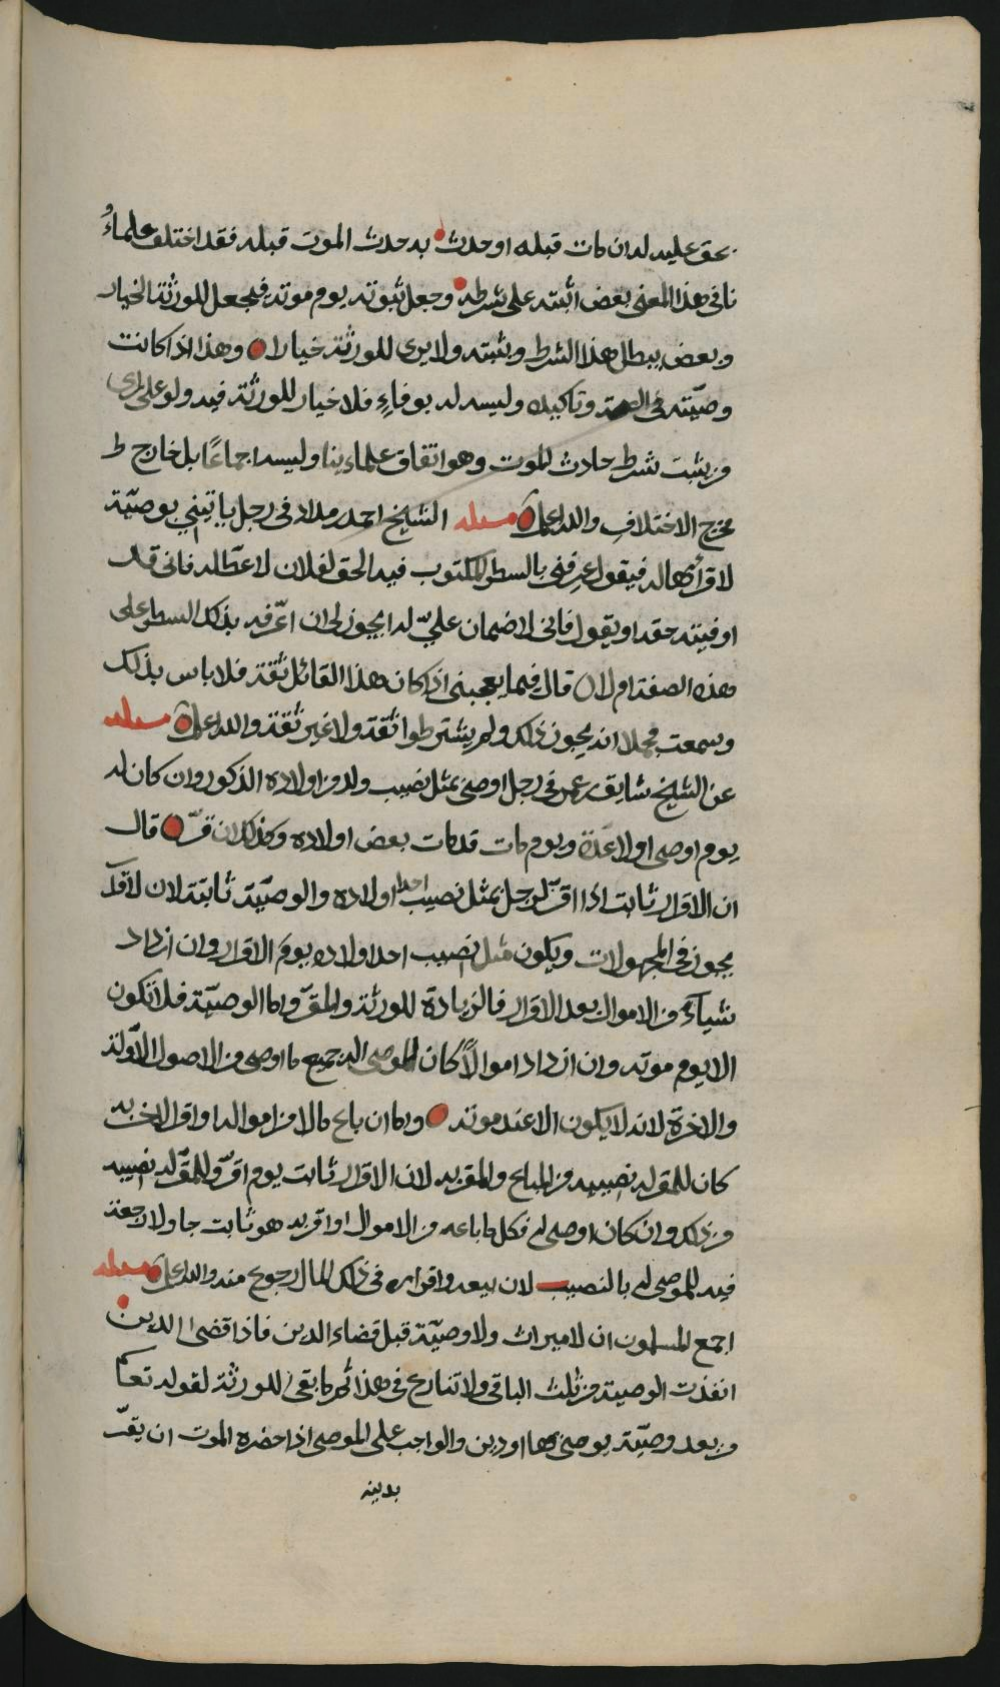 بحق عليه له ان مات قبله او حدث به حدث الموت قبله فقد اختلف علماؤ
نا في هذا المعنى بعض اثبته على شرطه وجعل ثبوته يوم موته فيجعل للورثة الخيار
وبعض يبطل هذا الشرط ويثبته ولا يرى للورثة خيارا وهذا اذا كانت
وصيته في الصحة وتاكيده وليسه له بوفاء فلا خيار للورثة فيه ولو على راى
من يثبت شرط حادث الموت وهو اتفاق علماءينا وليسه اجماعا بل خارج
مخرج الاختلاف والله اعلم مسئله الشيخ احمد بن مداد في رجل ياتيني بوصية
لاقرأها له فيقول عرفني بالسطر المكتوب فيه الحق لفلان لاعطاله فاني قد
اوفيته حقه او يقول فاني لا ضمان علي له ايجوز لي ان اعرفه بذلك السطر على
هذه الصفة ام لا قال فيما يعجبني اذا كان هذا القائل ثقة فلا باس بذلك
وسمعت مجملا انه يجوز ذلك ولم يشترطوا ثقة ولا غير ثقة والله اعلم مسئله
عن الشيخ شايق بن عمر في رجل اوصى بمثل نصيب ولد من اولاده الذكور وان كان له
يوم اوصى اولا عدة ويوم مات قد مات بعض اولاده وكذلك ان قر قال
ان الاقرار ثابت اذا اقر لرجل بمثل نصيب احد اولاده والوصية ثابتة لان الاقرار
يجوز في المجهولات ويكون مثل نصيب احد اولاده يوم الاقرار وان ازداد
شياء من الاموال بعد الاقرار فالزيادة للورثة والمقر واما الوصية فلا تكون
الا يوم موته وان ازداد اموالا كان للموصى اليه جميع ما اوصى من الاصول الاولة
والاخرة لانه لا يكون الا عند موته وما ان باع مالا من امواله او اقر لاخر به
كان للمقر له نصيبه من المباع والمقر به لان الاقرار ثابت يوم اقر وللمقر له نصيبه
من ذلك وان كان اوصى له فكل ما باعه من الاموال او اقر به هو ثابت جا ولا رجعة
فيه للموصى له بالنصيب لان بيعه واقراره في ذلك المال رجوع منه والله اعلم مسئله
اجمع المسلمون ان لا ميراث ولا وصية قبل قضاء الدين فاذا قضى الدين
انفذت الوصية من ثلث الباقي ولا تنازع في هذا ثم ما بقي للورثة لقوله تعا
من بعد وصية يوصى بها او دين والواجب على الموصي اذا حضره الموت ان يقر
بدينه